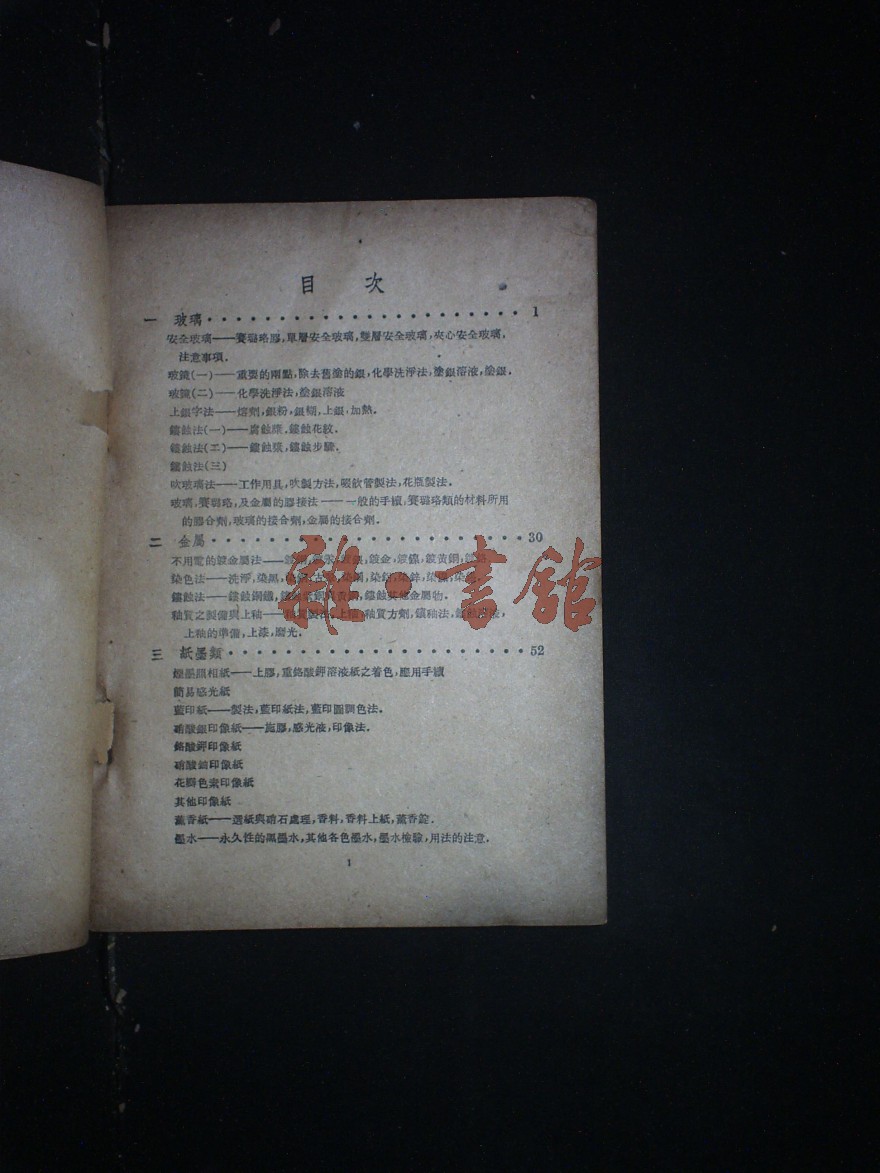 目次
一 玻璃····················1
安全玻璃——賽璐珞膠,單層安全玻璃,雙層安全玻璃,夾心安全玻璃,
注意事項.
玻鏡(一)——重要的兩點,除去舊塗的銀,化學洗淨法,塗銀溶液,塗銀.
玻鏡(二)——化學洗淨法,塗銀溶液
上銀字法——熔劑,銀粉,銀糊,上銀,加熱.
鏤蝕法(一)——腐蝕漿,鏤蝕花紋.
鏤蝕法(二)——鏤蝕漿,鏤蝕步驟.
鏤蝕法(三)
吹玻璃法——工作用具,吹製方法,吸飲管製法,花瓶製法.
玻璃,賽璐珞,及金屬的膠接法——一般的手續,賽璐珞類的材料所用
的膠合劑,玻璃的接合劑,金屬的接合劑.
二 金屬····················30
不用電的鍍金屬法——鍍金,鍍鎳,鍍黃銅
染色法——洗淨,染黑
鏤蝕法——鏤蝕銅鐵,鏤蝕其他金屬物.
釉質之製備與上釉——上釉,釉質方劑,鑲釉法
上釉的準備,上漆,磨光.
三 紙墨類····················52
煙墨顯相紙——上膠,重鉻酸鉀溶液紙之着色,應用手續
簡易感光紙
藍印紙——製法,藍印紙法,藍印圖調色法.
硝酸銀印像紙——施膠,感光液,印像法.
鉻酸鉀印像紙
硝酸鈾印像紙
花瓣色素印像紙
其他印像紙
薰香紙——選紙與硝石處理,香料,香料上紙,薰香錠.
墨水——永久性的黑墨水,其他各色墨水,墨水檢驗,用法的注意.
1
雜·書館